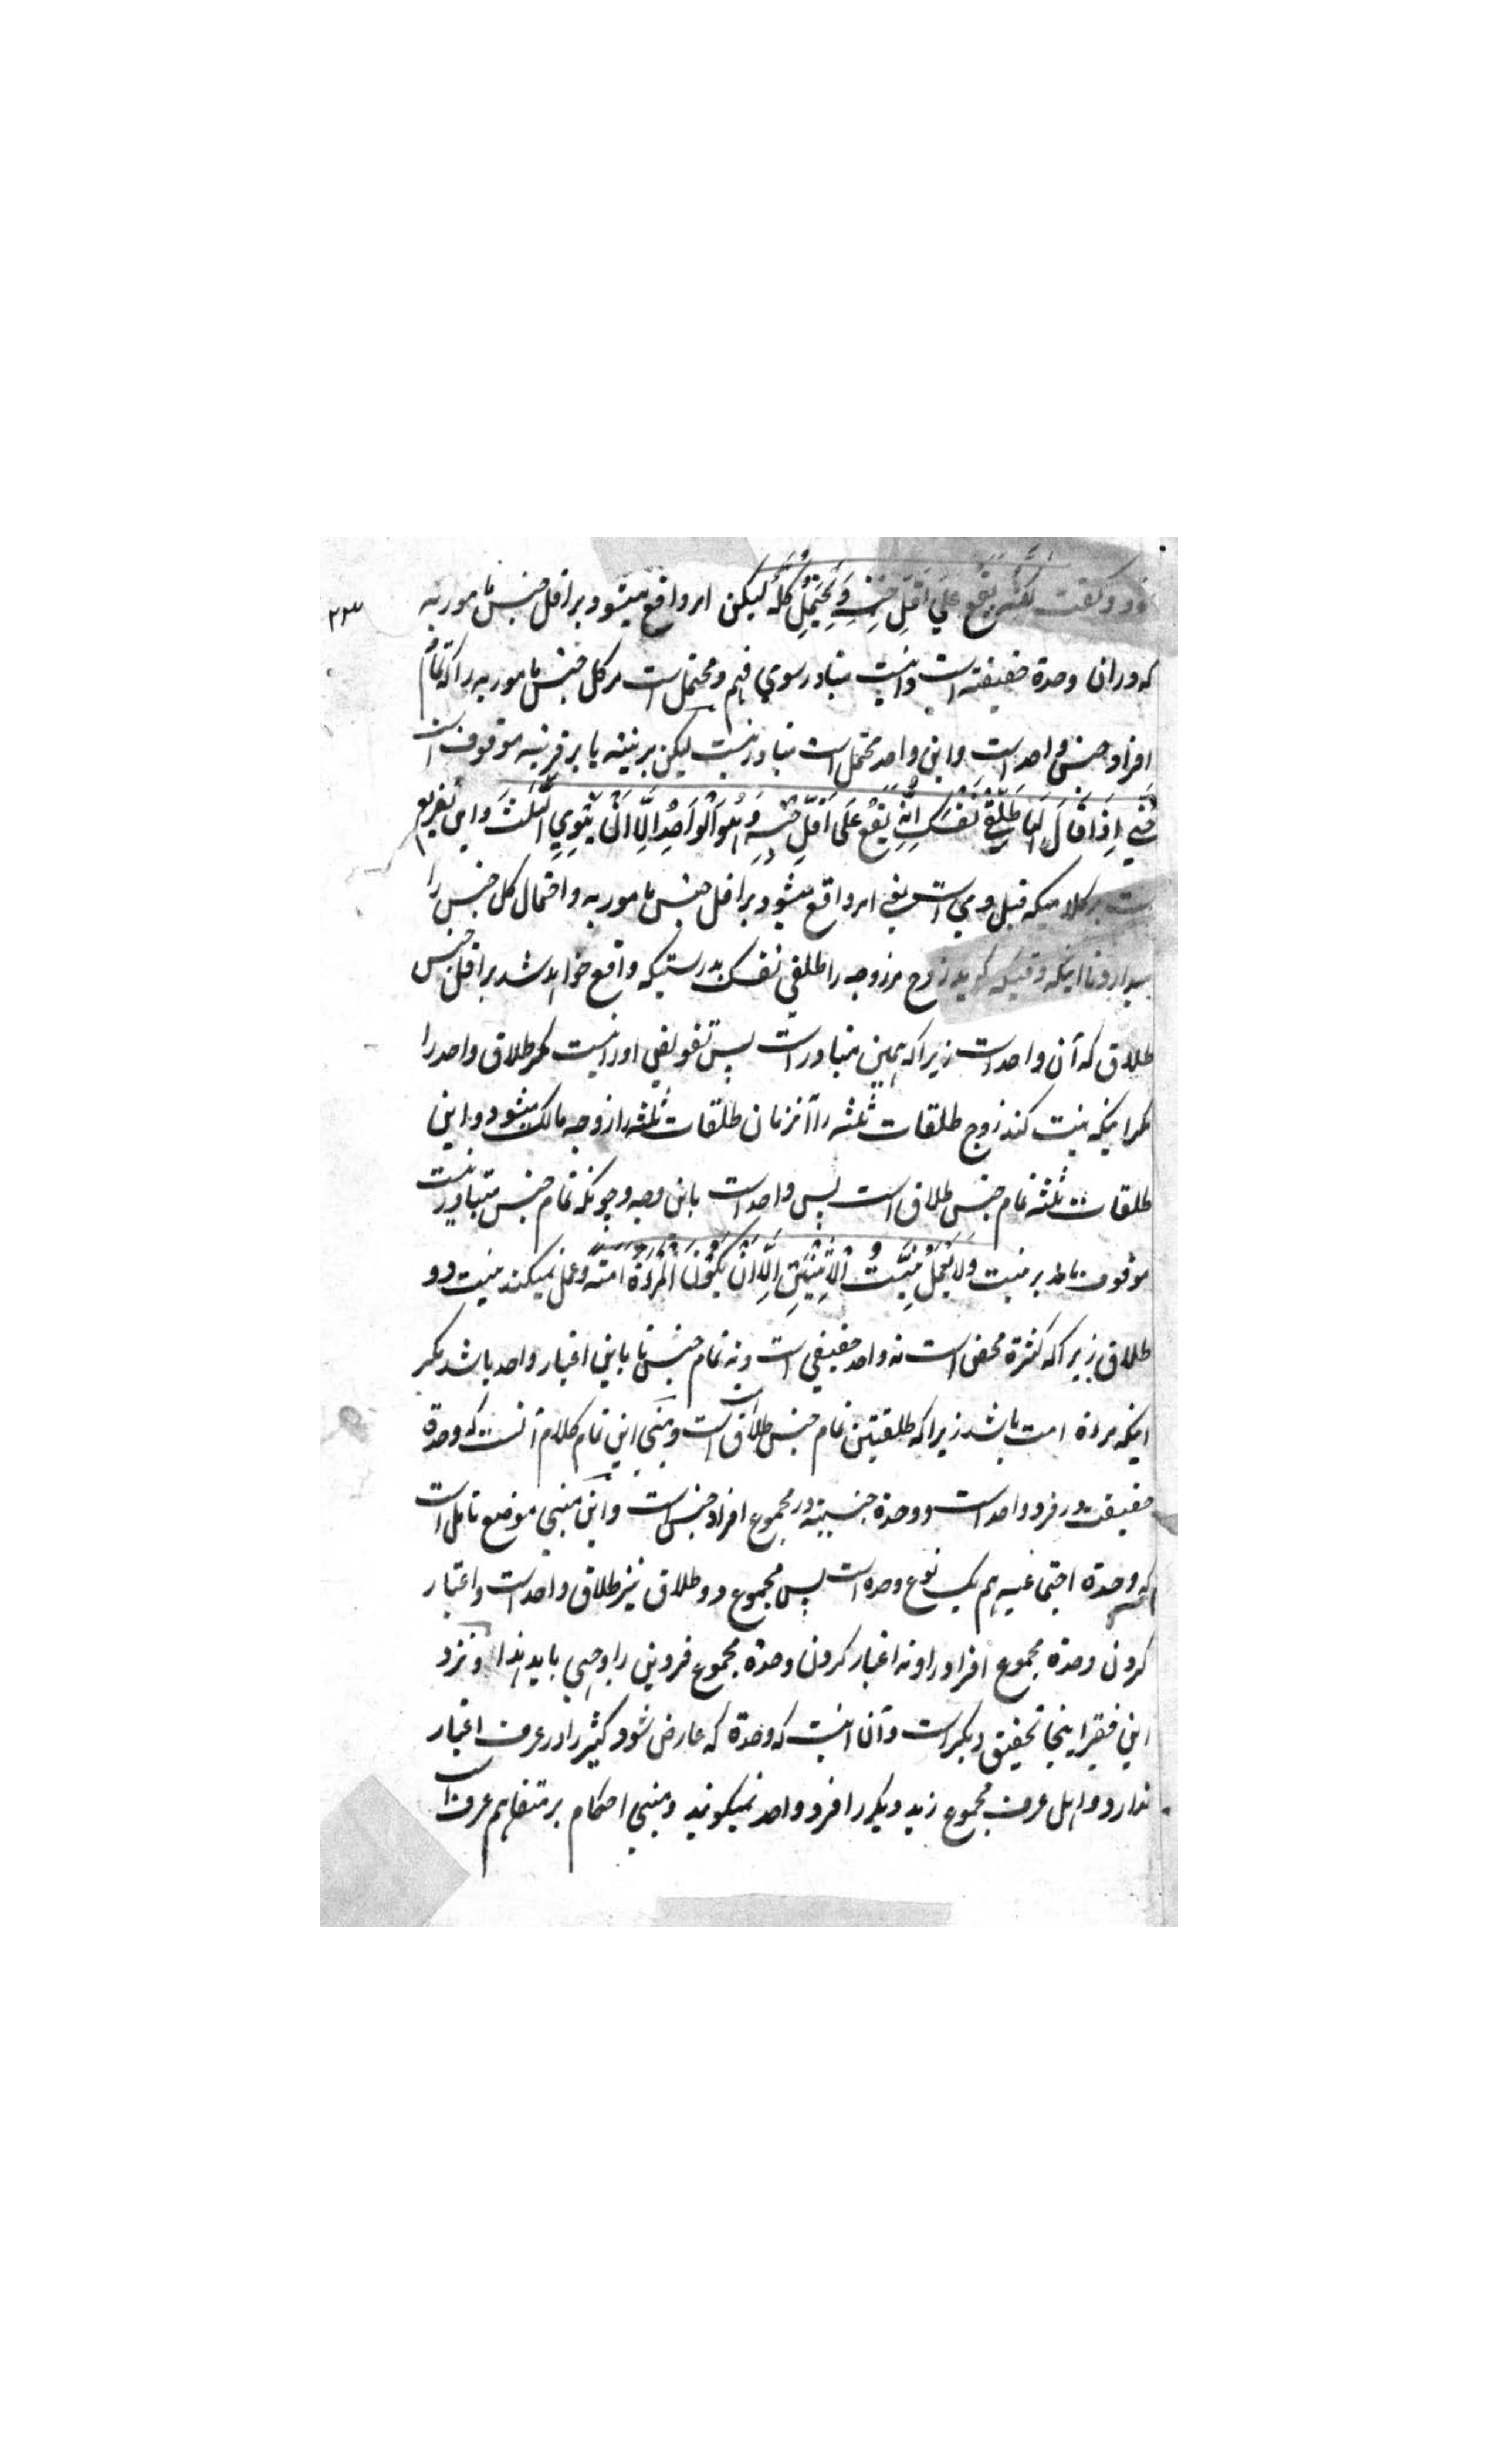 ۲۳
کفت لکنه یَقَعُ عَلَي اَقَلِ جِنْسِهِ وَيَحْتَمِلُ كُلَّهُ لیکن امر واقع میشود بر اقل جنس مامور به
که دران وحدة حقیقته است واینست متبادر سوي فهم ومحتمل است مر کل جنس مامور به را که تمام
افراد جنس واحد است واین واحد محتمل است متبادر نیست لیکن بر نیته یا بر قرینه موقوف است
حَتّٰي اِذَا قَالَ لَهَا طَلِّقِي نَفْسَكِ اِنَّهُ يَقَعُ عَلَى اَقَلِّ جِنْسِهِ وَهُوَ الْوَاحِدُ اِلَّا اَنْ يَنْوِيَ الثَّلٰثَ واین تفریع
ست بر کلامیکه قبل وي است یعنی امر واقع میشود بر اقل جنس مامور به واحتمال کل جنس را
میدارد تا اینکه وقتیکه کوید زوج مر زوجه را طلقي نفسک بدرستیکه واقع خواهد شد بر اقل جنس
طلاق که آن واحد است زیراکه همین متبادر است پس تفویض اورا نیست مکر طلاق واحد را
مکر اینکه نیت کند زوج طلقات ثلثه را آنزمان طلقات ثلثه را زوجه مالک میشود واین
طلقات ثلثه تمام جنس طلاق است پس واحد است باین وجه وچونکه تمام جنس متبادر نیست
موقوف ماند بر نیت وَلَا تَعْمَلُ نِيَّتُ الْاِثْنَيْنِ اِلَّا اَنْ يَكُوْنَ الْمَرْءَةُ اَمَتَهُ وعمل نمیکند نیت دو
طلاق زیراکه کثرة محض است نه واحد حقیقي است ونه تمام جنس تا باین اعتبار واحد باشد مکر
اینکه مرءة امت باشد زیراکه طلقتین تمام جنس طلاق است ومبني این تمام کلام آنست که وحدة
حقیقت در فرد واحد است ووحدة جنسیة در مجموع افراد جنس است واین مبني موضع تامل است
که وحدة اجتماعیه هم یک نوع وحده است پس مجموع دو طلاق نیز طلاق واحد است واعتبار
کردن وحدة مجموع افراد را ونه اعتبار کردن وحدة مجموع فردین را وجهي باید هذا ونزد
این فقیر اینجا تحقیق دیکر است وآن اینست که وحدة که عارض شود کثیر را در عرف اعتبار
ندارد واهل عرف مجموع زید وبکر را فرد واحد نمیکویند ومبني احکام بر متفاهم عرف است